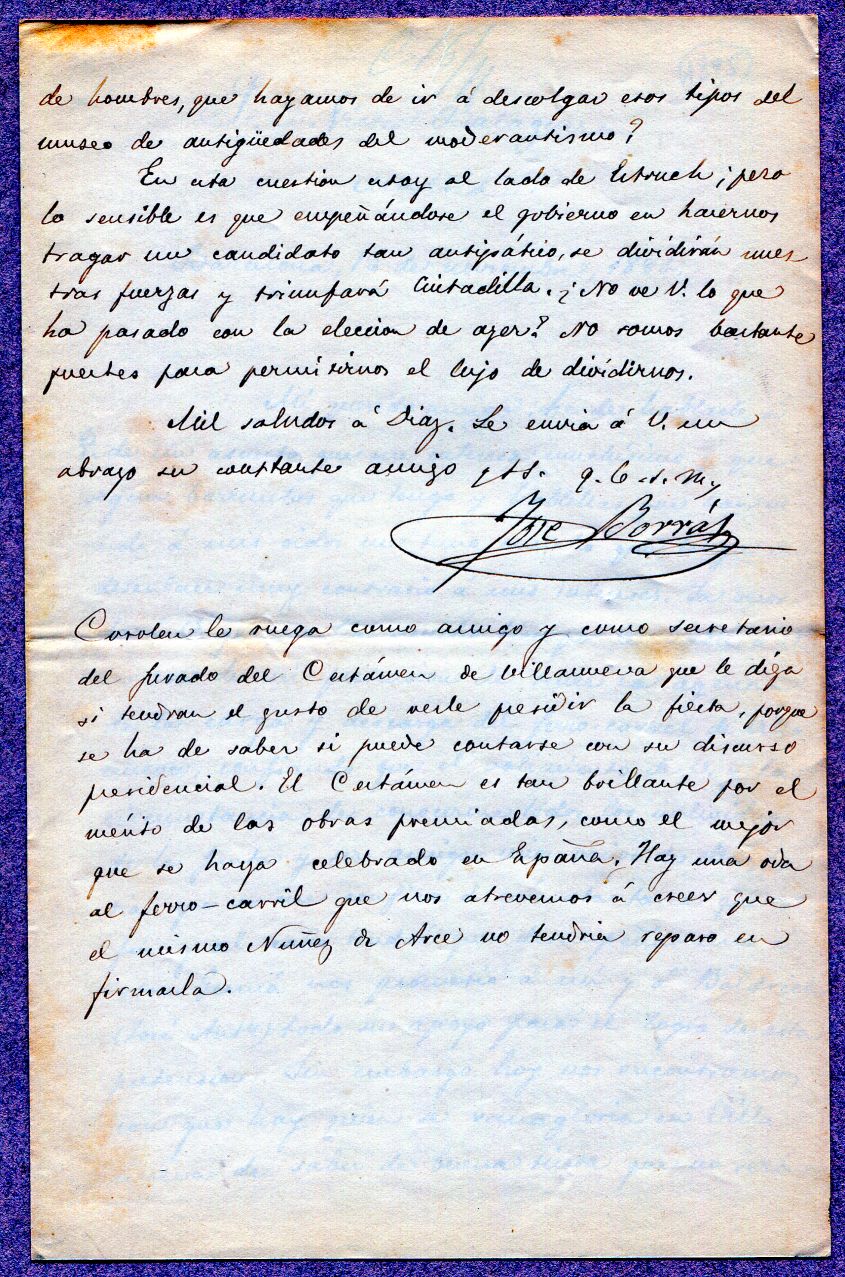 de hombres, que hayamos de ir á descolgar esos tipos del
museo de antigüedades del moderantismo?
En esta cuestion estoy al lado de Estruch; pero
lo sensible es que empeñándose el gobierno en hacernos
tragar un candidato tan antipático, se dividirán nues
tras fuerzas y triunfará Ciutadilla. ¿No ve V. lo que
ha pasado con la eleccion de ayer? No somos bastante
fuertes para permitirnos el lujo de dividirnos.
Mil saludos á Diaz. Le envia á V. un
abrazo su constante amigo y S. S. q. b. s. m.
José Borrás
Coroleu le ruega como amigo y como secretario
del Jurado del Certámen de Villanueva que le diga
si tendran el gusto de verle presidir la fiesta, porque
se ha de saber si puede contarse con su discurso
presidencial. El Certámen es tan brillante por el
mérito de las obras premiadas, como el mejor
que se haya celebrado en España. Hay una oda
al ferro-carril que nos atrevemos á creer que
el mismo Nuñez de Arce no tendria reparo en
firmarla.